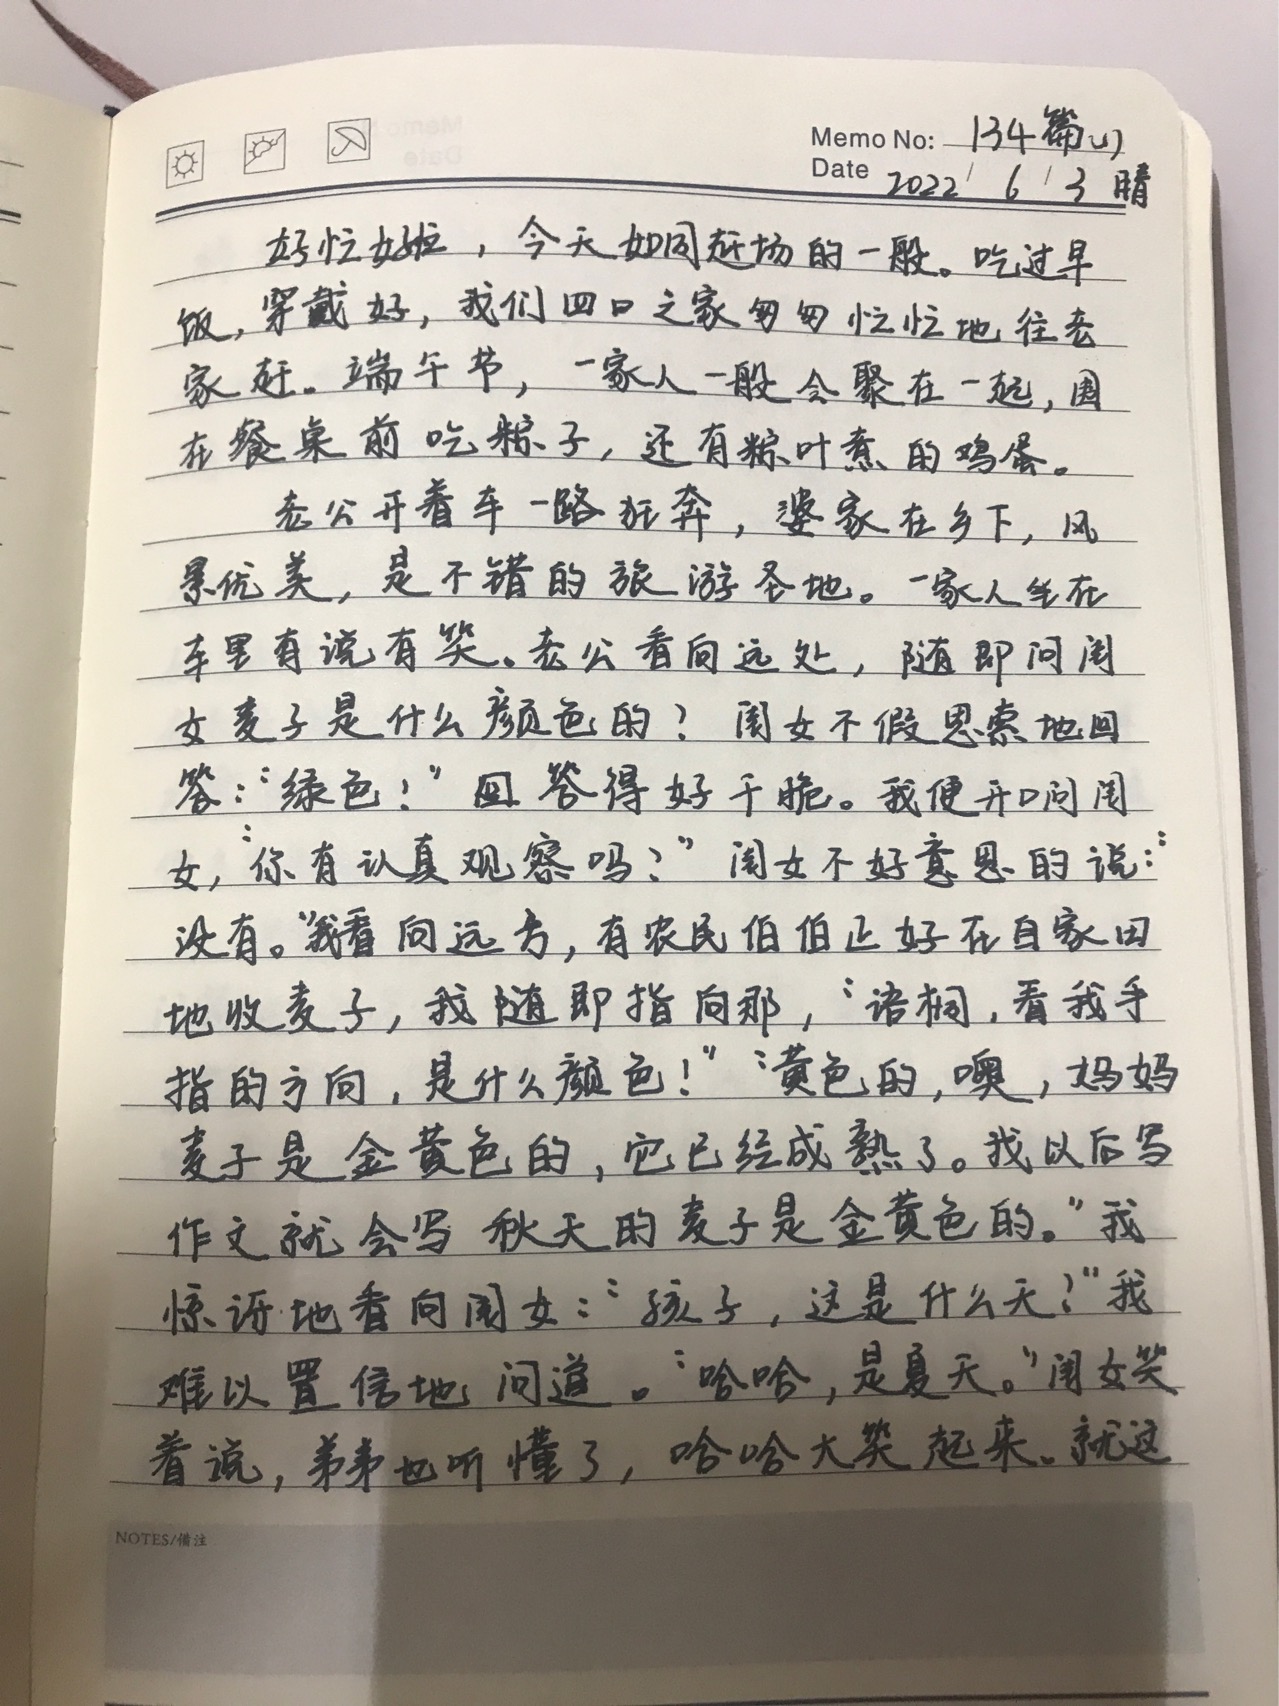 Memo No: 134篇(1)
Date 2022/6/3 晴
好忙好忙，今天如同赶场的一般。吃过早
饭，穿戴好，我们四口之家匆匆忙忙地往老
家赶。端午节，一家人一般会聚在一起，围
在餐桌前吃粽子，还有粽叶煮的鸡蛋。
老公开着车一路狂奔，婆家在乡下，风
景优美，是不错的旅游圣地。一家人坐在
车里有说有笑。老公看向远处，随即问闺
女麦子是什么颜色的？闺女不假思索地回
答：“绿色！”回答得好干脆。我便开口问闺
女，“你有认真观察吗？”闺女不好意思的说：“
没有。”我看向远方，有农民伯伯正好在自家田
地收麦子，我随即指向那，“语桐，看我手
指的方向，是什么颜色！”“黄色的，噢，妈妈
麦子是金黄色的，它已经成熟了。我以后写
作文就会写秋天的麦子是金黄色的。”我
惊讶地看向闺女：“孩子，这是什么天？”我
难以置信地问道。“哈哈，是夏天。”闺女笑
着说，弟弟也听懂了，哈哈大笑起来。就这
NOTES/备注